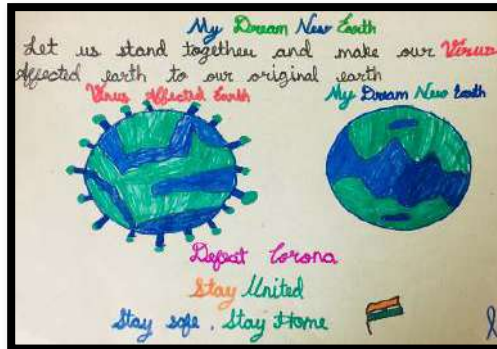 My Dream New Earth
Let us stand together and make our Virus
Affected earth to our original earth
Virus Affected Earth My Dream New Earth
Defeat Corona
Stay United
Stay safe, Stay Home